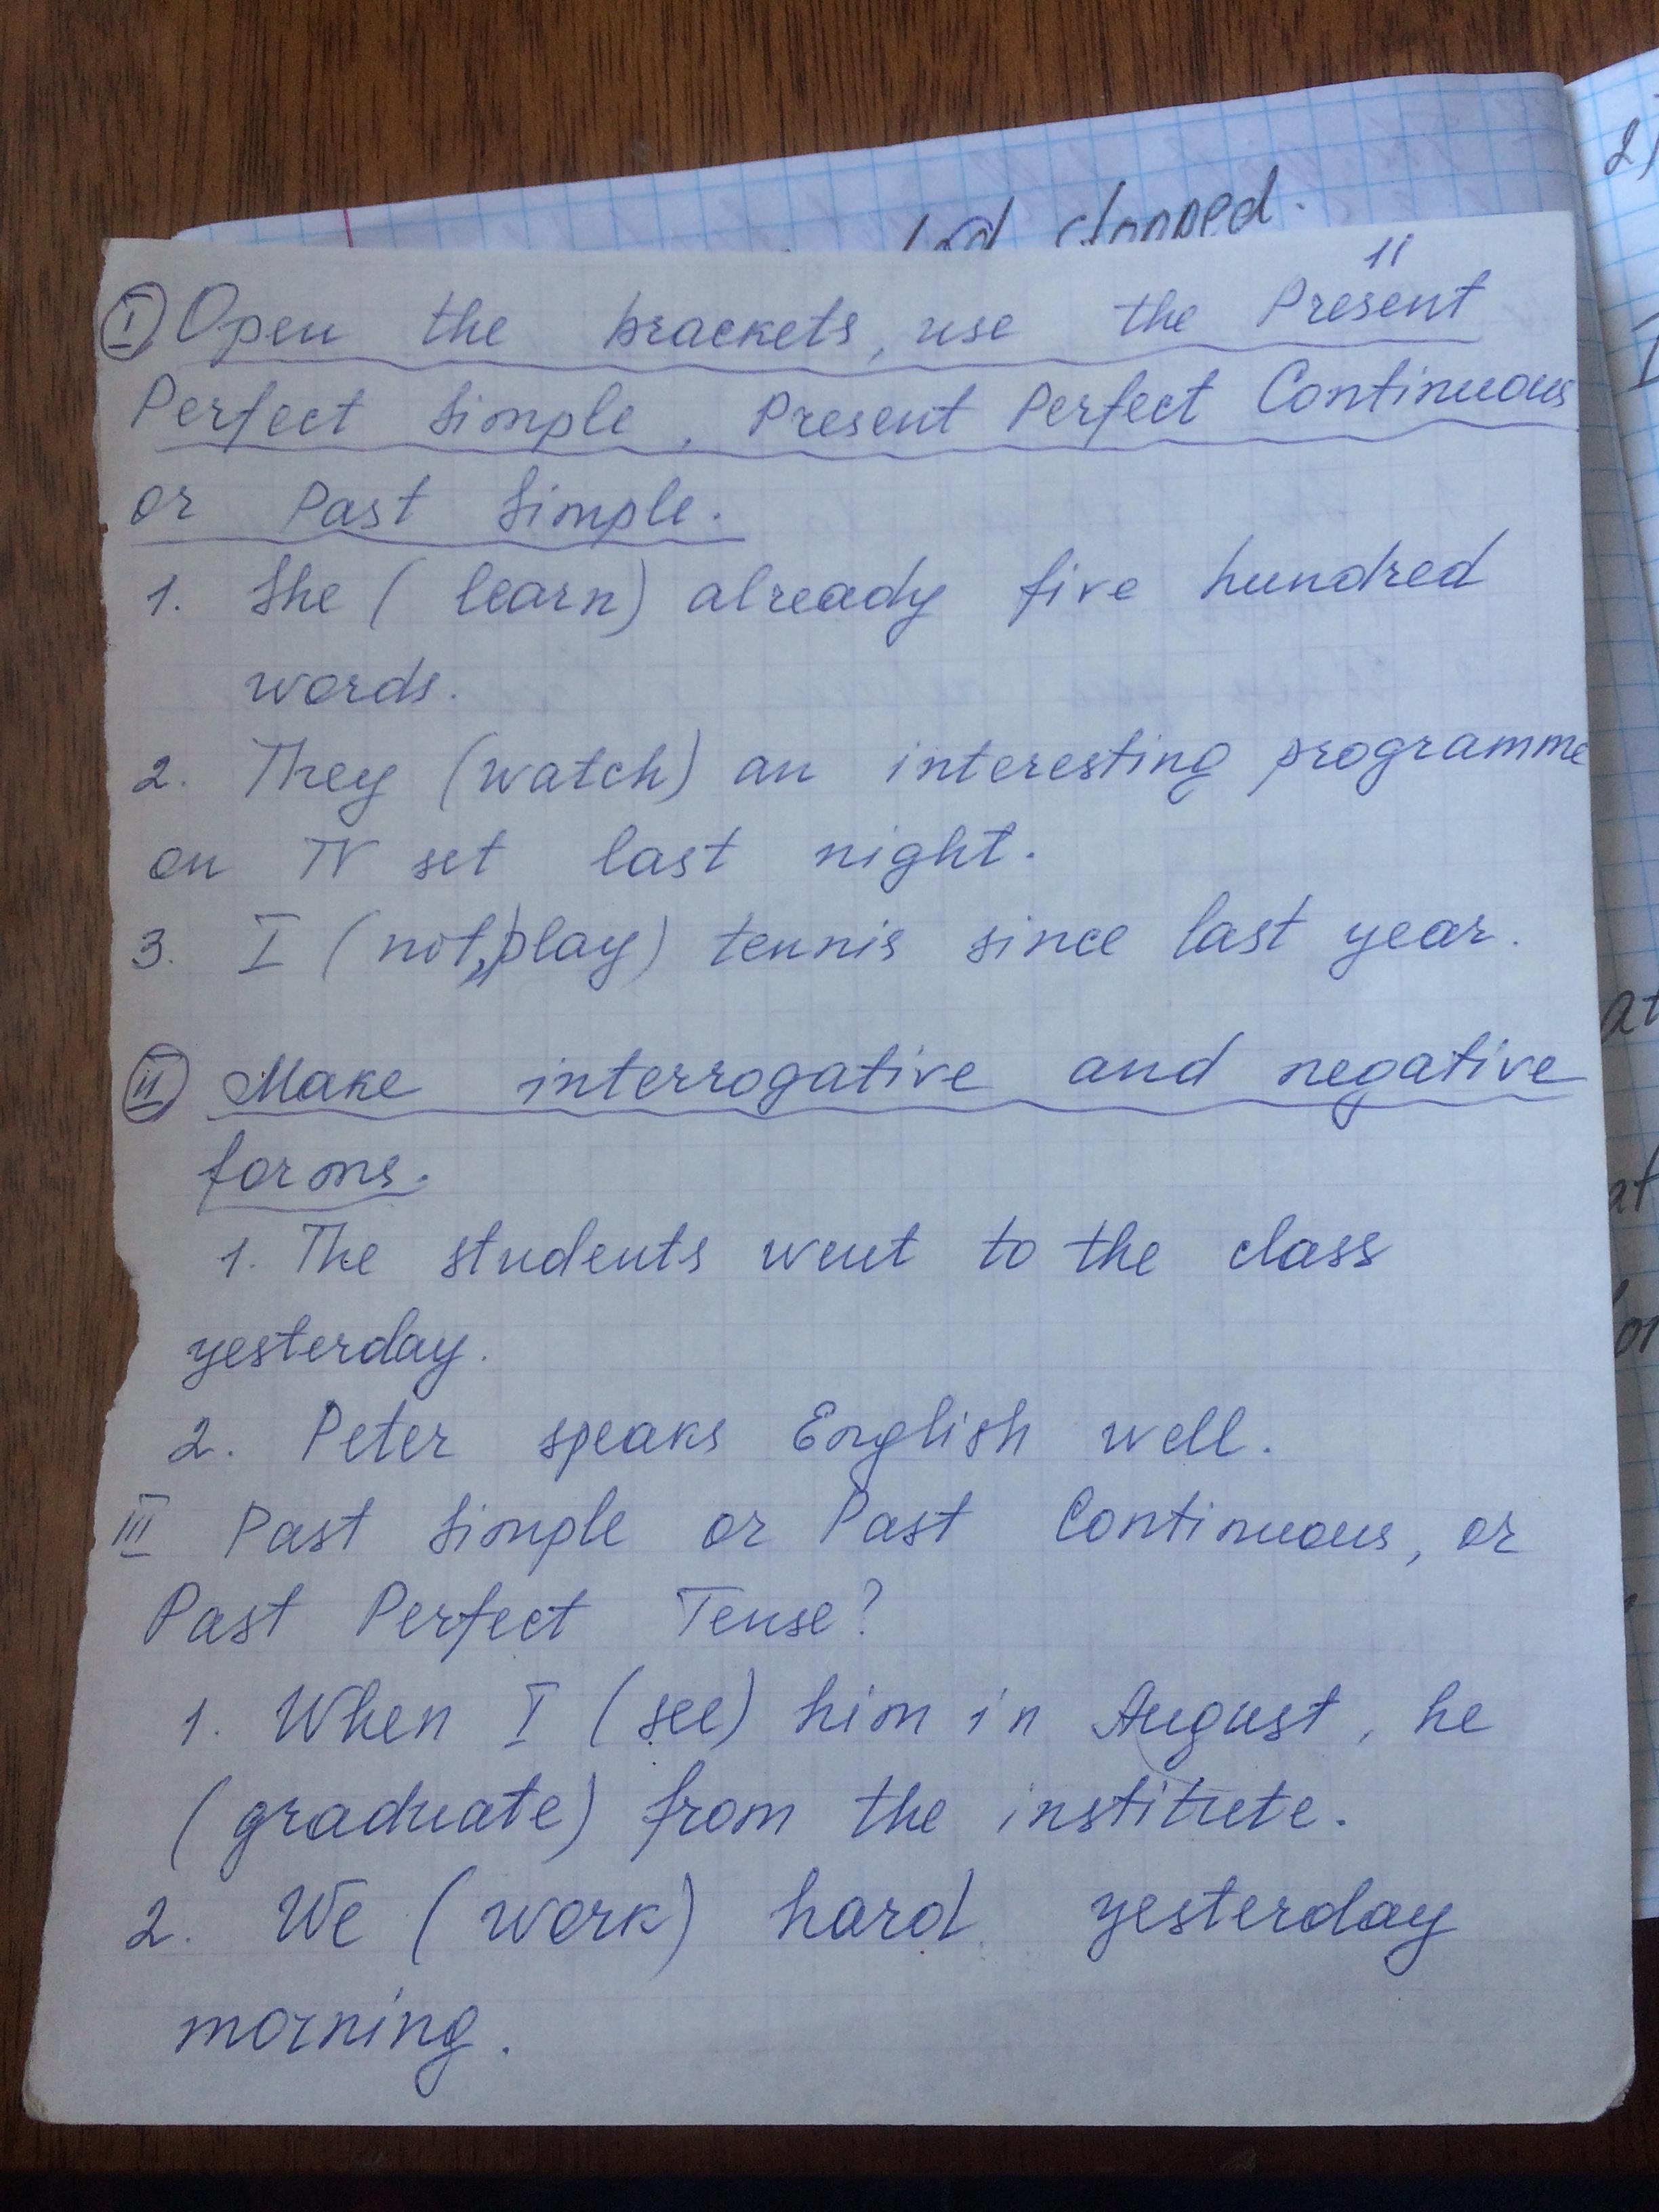 stopped.
2)
11
I Open the brackets, use the Present
Perfect Simple, Present Perfect Continuous
or Past Simple.
1. She (learn) already five hundred
words.
2. They (watch) an interesting programme
on TV set last night.
3. I (not, play) tennis since last year.
II Make interrogative and negative
forms.
1. The students went to the class
yesterday.
2. Peter speaks English well.
III Past Simple or Past Continuous, or
Past Perfect Tense?
1. When I (see) him in August, he
(graduate) from the institute.
2. We (work) hard yesterday
morning.